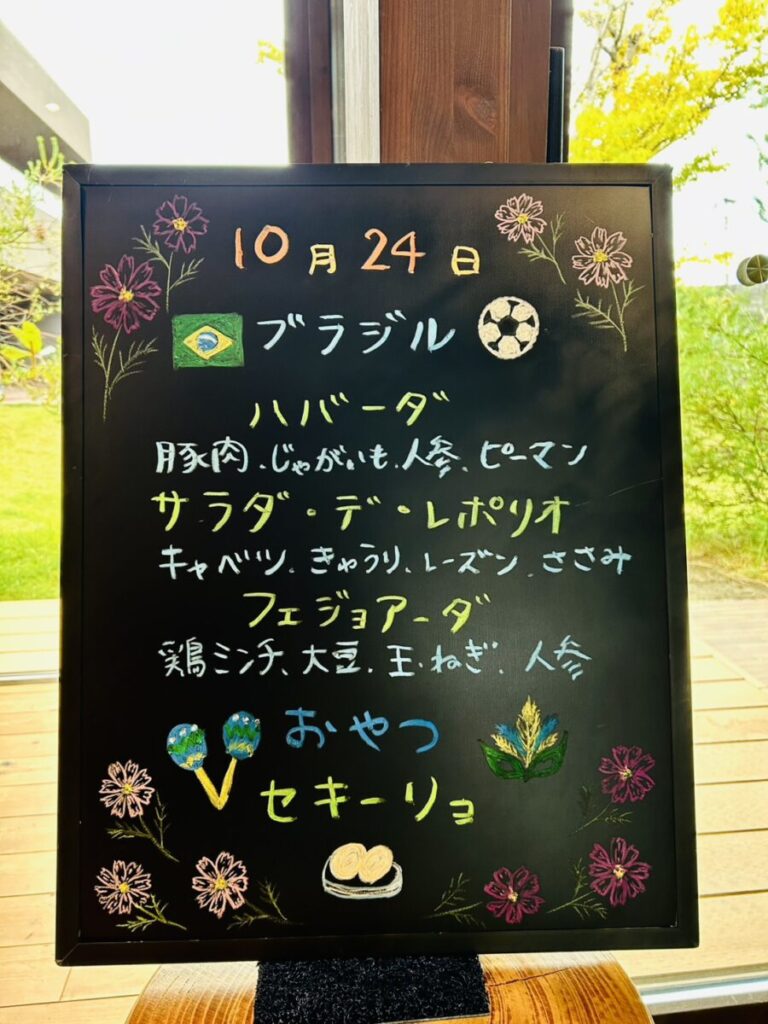 10月24日
ブラジル
ハバーダ
豚肉、じゃがいも、人参、ピーマン
サラダ・デ・レポリオ
キャベツ、きゅうり、レーズン、ささみ
フェジョアーダ
鶏ミンチ、大豆、玉ねぎ、人参
おやつ
セキーリョ